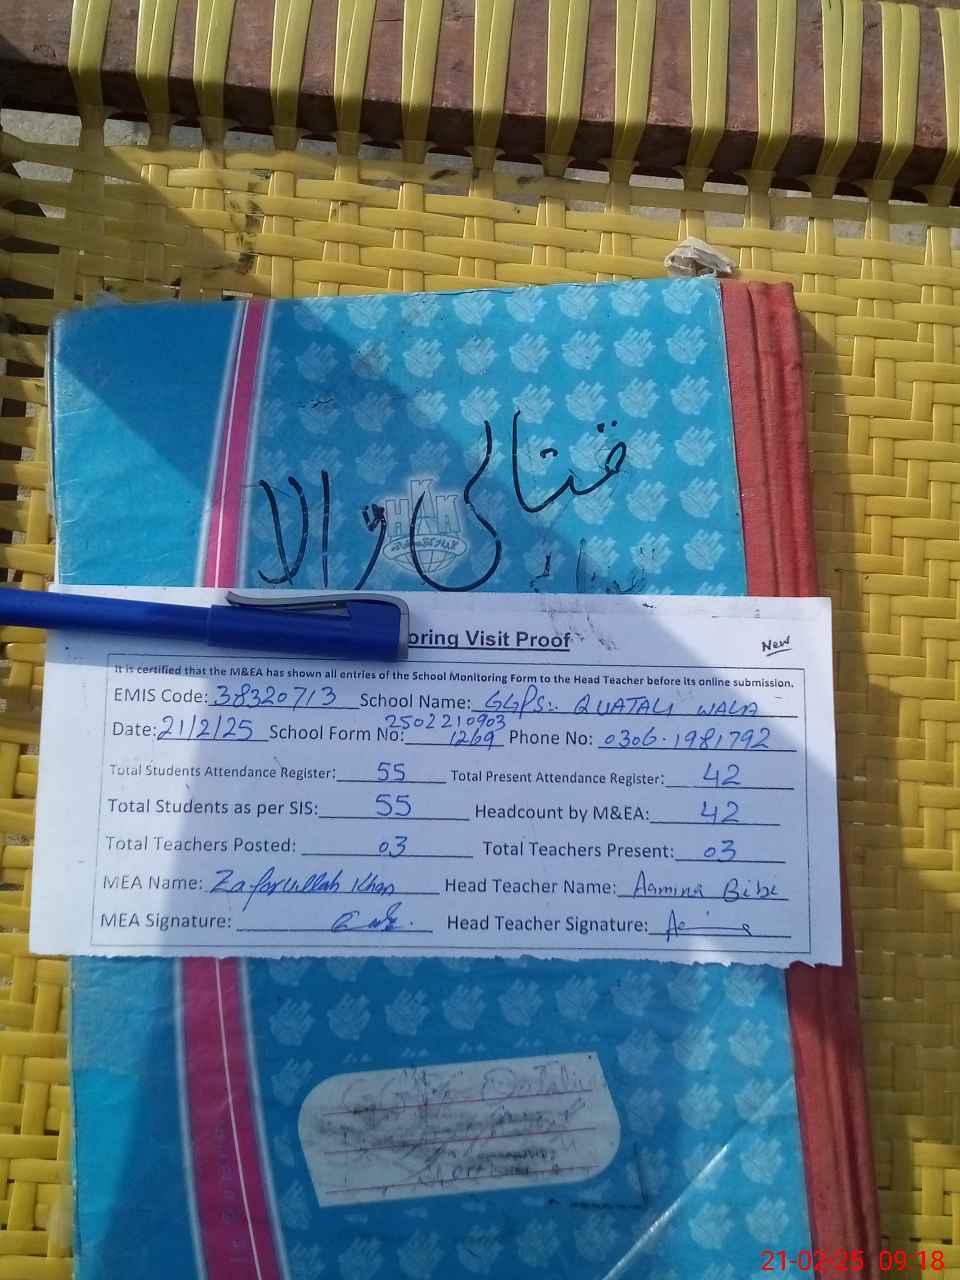 قتالی والا
HKK
oring Visit Proof
New
It is certified that the M&EA has shown all entries of the School Monitoring Form to the Head Teacher before its online submission.
EMIS Code: 38320713 School Name: GGPS: QUATALI WALA
Date: 21/2/25 School Form No: 2502210903
1269 Phone No: 0306-1981792
Total Students Attendance Register: 55 Total Present Attendance Register: 42
Total Students as per SIS: 55 Headcount by M&EA: 42
Total Teachers Posted: 03 Total Teachers Present: 03
MEA Name: Zafarullah Khan Head Teacher Name: Aamina Bibi
MEA Signature: Head Teacher Signature:
21-02-25 09:18